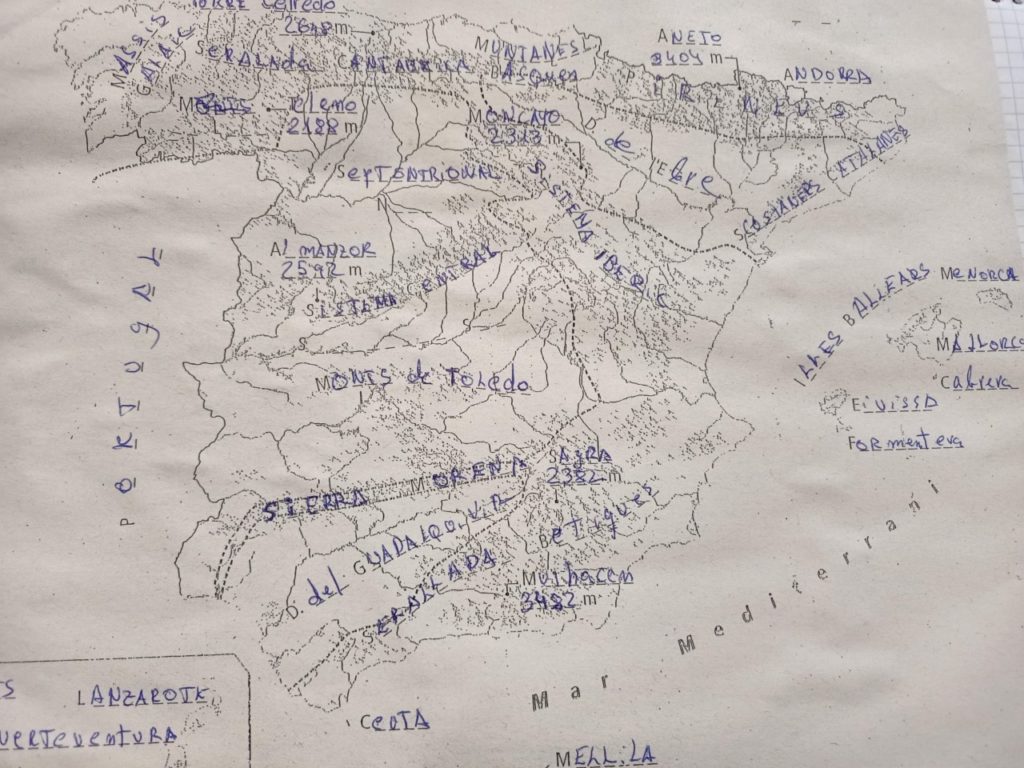 TORRE Cerredo
2648 m
MASSIS
GALAIC
SERALADA CANTABRICA
MUNTANES
BASQUES
ANETO
3404 m
ANDORRA
PIRINEUS
MONTS
Teleno
2188 m
MONCAYO
2313 m
D. de l'Ebre
SepTENTRIONAL
SISTEMA IBERIC
S COSTANERES CATALANES
ALMANZOR
2592 m
SISTEMA CENTRAL
PORTUGAL
ILLES BALLEARS
MENORCA
MALLORCA
Cabrera
EIVISSA
FORmentera
MONTS de TOLEDO
SIERRA MORENA
SAGRA
2382 m
D. del GUADALQUIVIR
SERALLADA Betiques
Mulhacem
3482 m
Mar Mediterrani
LANZAROTE
uerteventura
CEUTA
MELLiLA